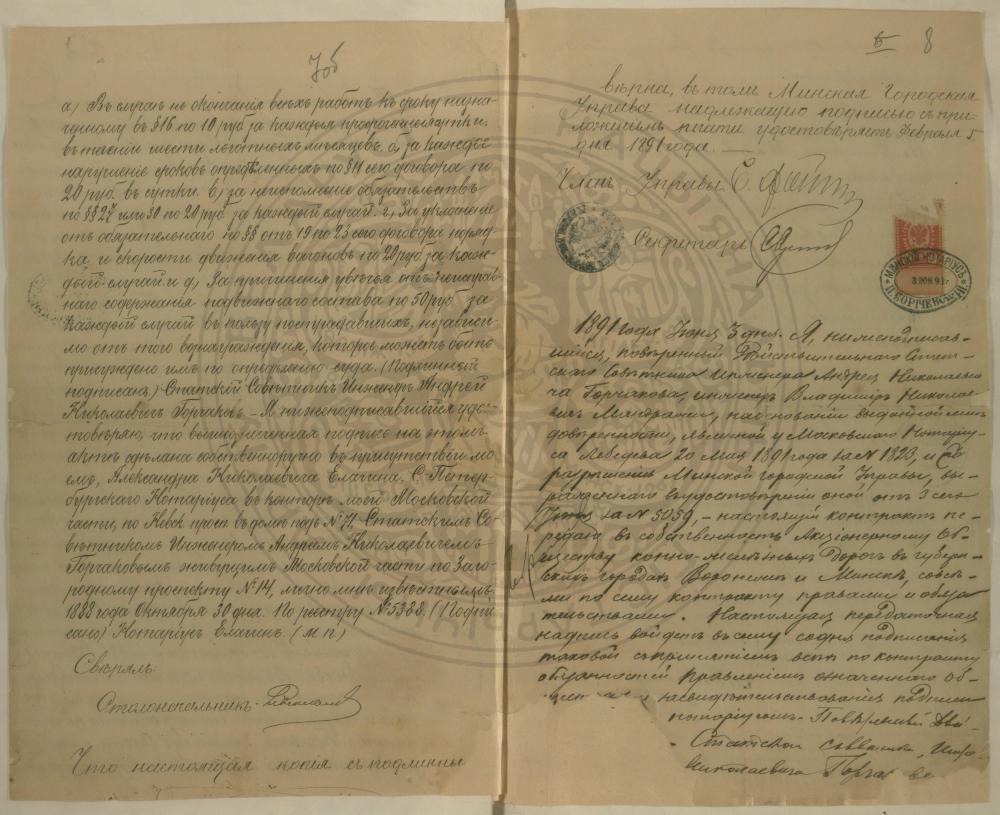 7об
а) Въ случаѣ не окончанія всѣхъ работъ къ сроку назна-
ченному въ § 16 по 10 руб за каждыя просроченныя сутки,
въ теченіи шести льготныхъ мѣсяцевъ, б) за каждое
нарушеніе сроковъ опредѣленныхъ по § 11 сего договора по
20 руб. въ сутки. в) за неисполненіе обязательствъ
по §§ 27 или 30 по 20 руб. за каждый случай. г) За уклоненіе
отъ обязательнаго по §§ отъ 19 по 23 сего договора поряд-
ка и скорости движенія вагоновъ по 20 руб. за каж-
дый случай и д) За причиненія увѣчья отъ неисправ-
наго содержанія подвижнаго состава по 50 руб за
каждый случай въ пользу пострадавшихъ, независи-
мо отъ того вознагражденія, которое можетъ быть
присуждено имъ по опредѣленію суда. (Подлинный
подписалъ) Статскій Совѣтникъ Инженеръ Андрей
Николаевичъ Горчаковъ. – Я нижеподписавшійся удо-
стовѣряю, что вышеозначенная подпись на этомъ
актѣ сдѣлана собственноручно въ присутствіи мо-
емъ, Александра Николаевича Елагина, С. Петер-
бургскаго Нотаріуса въ конторѣ моей Московской
части, по Невск. просп въ домѣ подъ № 71, Статскимъ Со-
вѣтникомъ Инженеромъ Андреемъ Николаевичемъ
Горчаковымъ живущимъ Московской части по Заго-
родному проспекту № 14, лично мнѣ извѣстнымъ.
1888 года Октября 30 дня. По реестру № 5388. (Подпи-
сано) Нотаріусъ Елагинъ. (М. П.)
Свѣрялъ:
Столоначальникъ
Что настоящая копія съ подлинны
8
вѣрна, въ томъ Минская Городская
Управа надлежащею подписью съ при-
ложеніемъ печати удостовѣряетъ. Февраля 5
дня 1891 года.
Членъ Управы
Секретарь
МИНСКІЙ НОТАРІУСЪ
3 ІЮН. 91 г.
П. КОРИЧЕВСКІЙ
1891 года Іюня 3 дня. Я, нижеподписав-
шійся, повѣренный Дѣйствительнаго Стат-
скаго Совѣтника Инженера Андрея Николаеви-
ча Горчакова, инженеръ Владиміръ Николае-
вичъ, на основаніи выданной мнѣ
довѣренности, явленной у Московскаго Нотаріу-
са Лебедева 20 Мая 1891 года за № 1823, и съ
разрѣшенія Минской городской Управы, вы-
раженнаго въ удостовѣреніи оной отъ 3 сего
Іюня за № 5059, – настоящій контрактъ пе-
редаю въ собственность Акціонерному Об-
ществу конно-желѣзныхъ дорогъ въ губерн-
скихъ городахъ Воронежѣ и Минскѣ, со всѣ-
ми по сему контракту правами и обяза-
тельствами. Настоящая передаточная
надпись войдетъ въ силу со дня подписанія
таковой съ принятіемъ всѣхъ по контракту
обязанностей Правленіемъ означеннаго Об-
щества и засвидѣтельствованія подписи
нотаріусомъ. Повѣренный Дѣй-
Статскаго совѣтника, Инже
Николаевича Горчакова